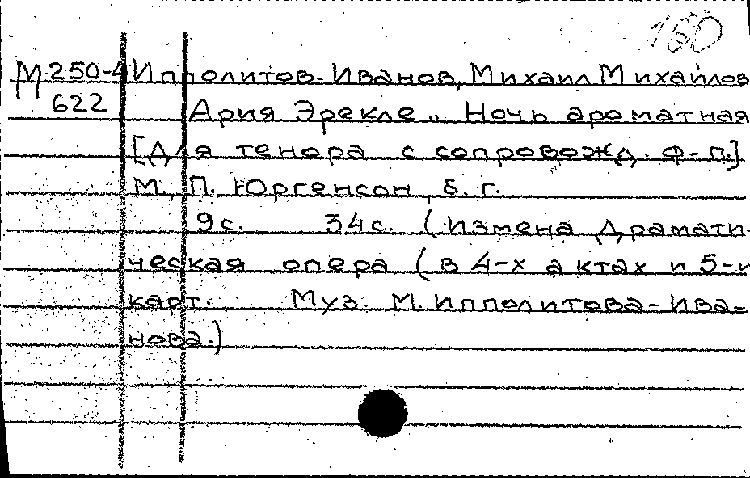 160
М 250-4 Ипполитов-Иванов, Михаил Михайлов
622 Ария Эрекле „Ночь ароматная
[Для тенора с сопровожд. ф-п.]
М., П. Юргенсон, б. г.
9 с. 34 с. (Измена Драмати-
ческая опера (в 4-х актах и 5-и
карт. Муз. М. Ипполитова-Ива-
нова.)